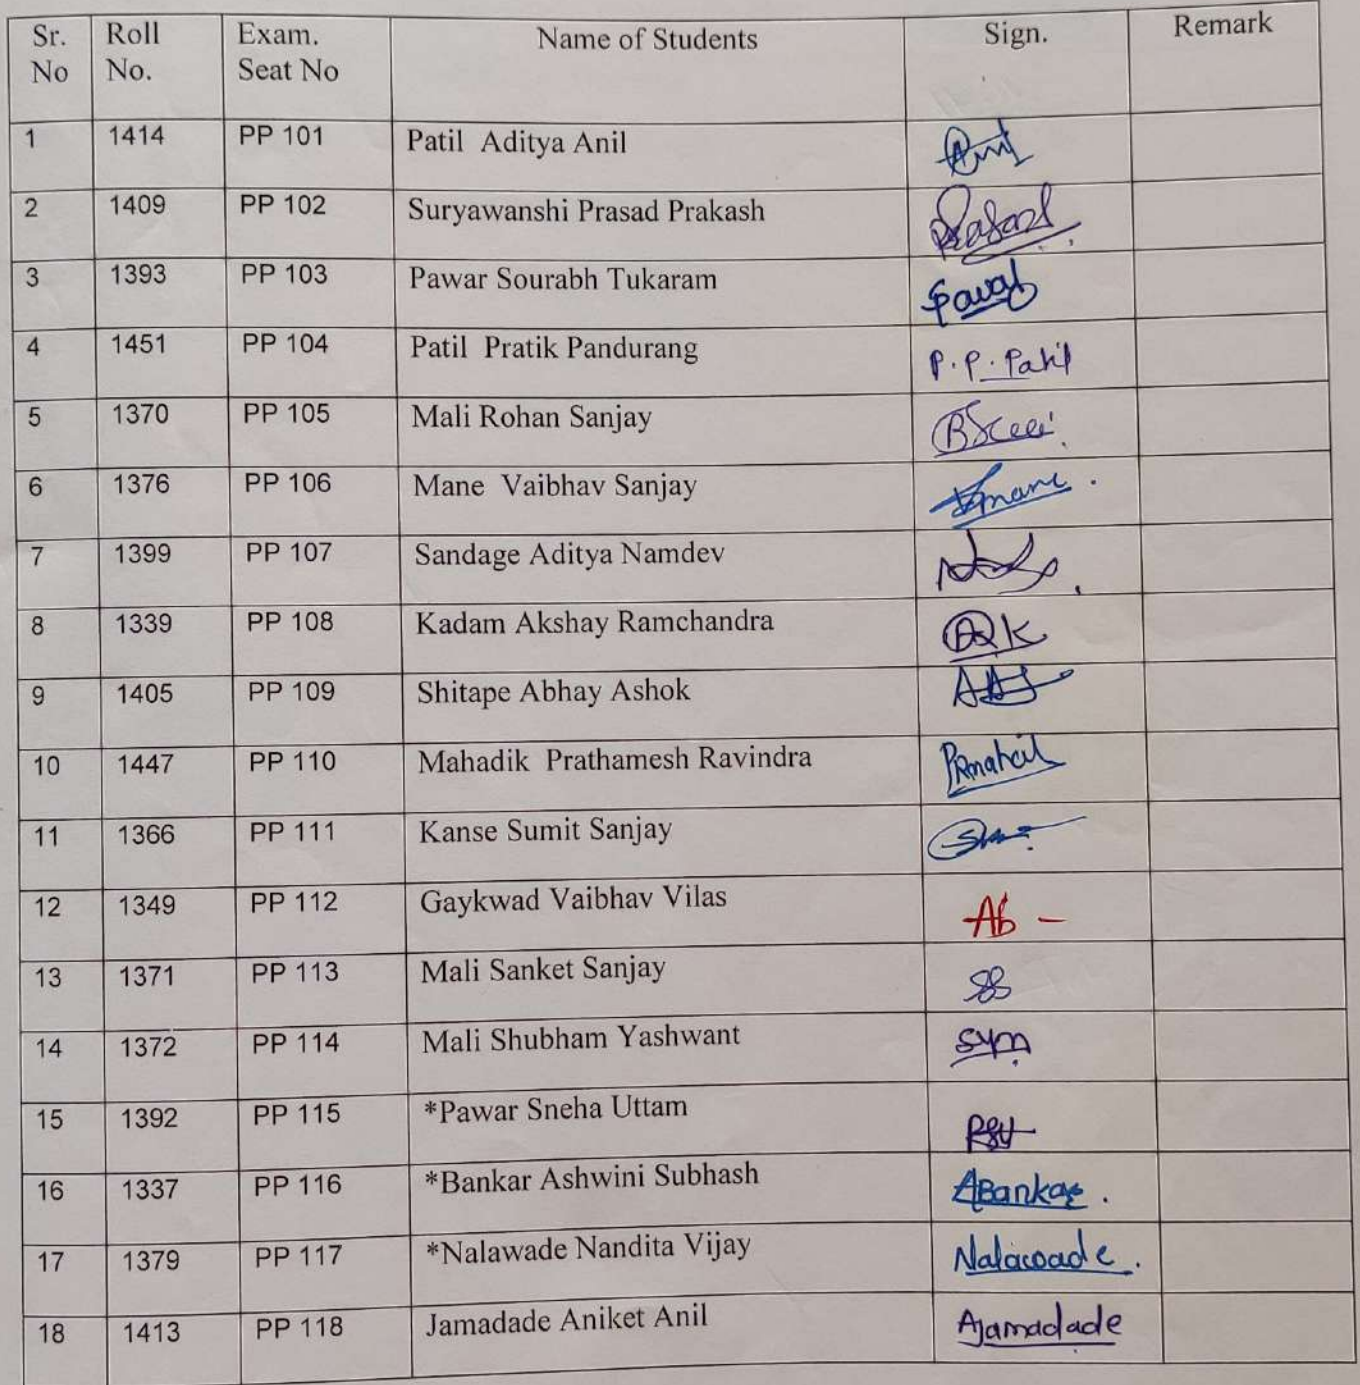 Sr. No Roll No. Exam. Seat No Name of Students Sign. Remark
1 1414 PP 101 Patil Aditya Anil
2 1409 PP 102 Suryawanshi Prasad Prakash
3 1393 PP 103 Pawar Sourabh Tukaram
4 1451 PP 104 Patil Pratik Pandurang P.P.Patil
5 1370 PP 105 Mali Rohan Sanjay
6 1376 PP 106 Mane Vaibhav Sanjay
7 1399 PP 107 Sandage Aditya Namdev
8 1339 PP 108 Kadam Akshay Ramchandra ARK
9 1405 PP 109 Shitape Abhay Ashok
10 1447 PP 110 Mahadik Prathamesh Ravindra
11 1366 PP 111 Kanse Sumit Sanjay
12 1349 PP 112 Gaykwad Vaibhav Vilas Ab –
13 1371 PP 113 Mali Sanket Sanjay
14 1372 PP 114 Mali Shubham Yashwant SYM
15 1392 PP 115 *Pawar Sneha Uttam PSU
16 1337 PP 116 *Bankar Ashwini Subhash ABankar.
17 1379 PP 117 *Nalawade Nandita Vijay Nalawade.
18 1413 PP 118 Jamadade Aniket Anil Ajamadade